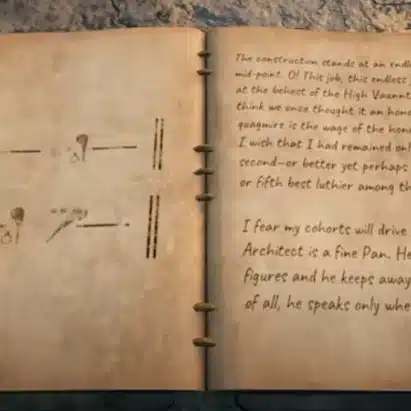 The construction stands at an
mid-point. O! This job, this endless
at the behest of the High
think we once thought it an
quagmire is the wage of the
I wish that I had remained
second—or better yet perhaps
or fifth best luthier among
I fear my cohorts will drive
Architect is a fine Pan. He
figures and he keeps away
of all, he speaks only